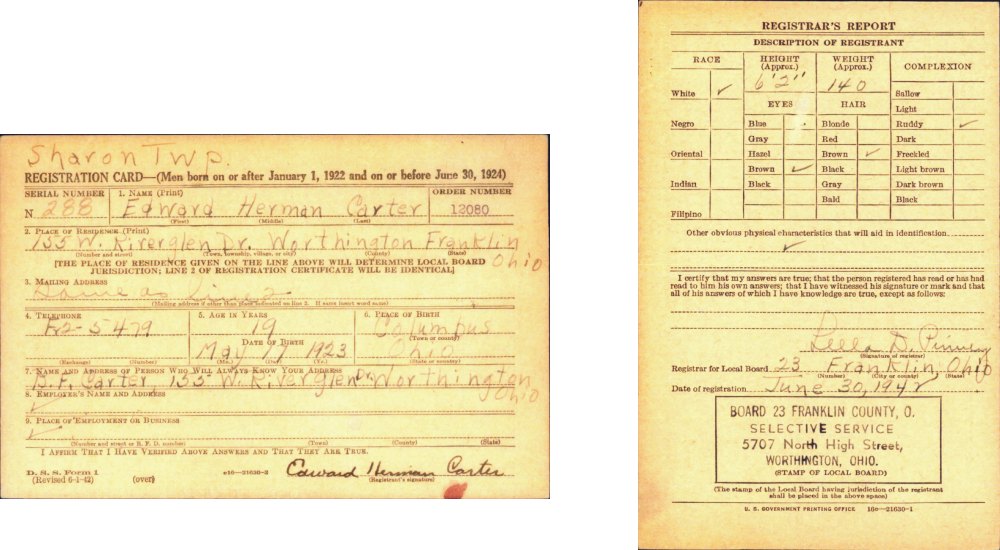 Sharon Twp.
REGISTRATION CARD—(Men born on or after January 1, 1922 and on or before June 30, 1924)
SERIAL NUMBER 1. NAME (Print) ORDER NUMBER
N 288 Edward Herman Carter 12080
(First) (Middle) (Last)
2. PLACE OF RESIDENCE (Print)
155 W. Riverglen Dr. Worthington Franklin Ohio
(Number and street) (Town, township, village, or city) (County) (State)
[THE PLACE OF RESIDENCE GIVEN ON THE LINE ABOVE WILL DETERMINE LOCAL BOARD
JURISDICTION; LINE 2 OF REGISTRATION CERTIFICATE WILL BE IDENTICAL]
3. MAILING ADDRESS
Same as line 2
(Mailing address if other than place indicated on line 2. If same insert word same)
4. TELEPHONE 5. AGE IN YEARS 6. PLACE OF BIRTH
2-5479 19 Columbus
DATE OF BIRTH (Town or county)
May 17 1923 Ohio
(Exchange) (Number) (State or country)
7. NAME AND ADDRESS OF PERSON WHO WILL ALWAYS KNOW YOUR ADDRESS
Carter, 155 W. Riverglen Dr. Worthington Ohio
8. EMPLOYER'S NAME AND ADDRESS
9. PLACE OF EMPLOYMENT OR BUSINESS
(Number and street or R. F. D. number) (Town) (County) (State)
I AFFIRM THAT I HAVE VERIFIED ABOVE ANSWERS AND THAT THEY ARE TRUE.
D. S. S. Form 1 16—21630-2 Edward Herman Carter
(Revised 6-1-42) (over) (Registrant's signature)
REGISTRAR'S REPORT
DESCRIPTION OF REGISTRANT
RACE HEIGHT (Approx.) WEIGHT (Approx.) COMPLEXION
6'2" 140
White ✓ Sallow
EYES HAIR Light
Negro Blue Blonde Ruddy ✓
Gray Red Dark
Oriental Hazel Brown ✓ Freckled
Brown ✓ Black Light brown
Indian Black Gray Dark brown
Bald Black
Filipino
Other obvious physical characteristics that will aid in identification
✓
I certify that my answers are true; that the person registered has read or has had
read to him his own answers; that I have witnessed his signature or mark and that
all of his answers of which I have knowledge are true, except as follows:
(Signature of registrar)
Registrar for Local Board 23 Franklin, Ohio
(Number) (City or county) (State)
Date of registration June 30, 1942
BOARD 23 FRANKLIN COUNTY, O.
SELECTIVE SERVICE
5707 North High Street,
WORTHINGTON, OHIO.
(STAMP OF LOCAL BOARD)
(The stamp of the Local Board having jurisdiction of the registrant
shall be placed in the above space)
U. S. GOVERNMENT PRINTING OFFICE 16—21630-1